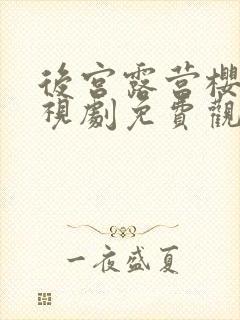 後宮露营櫻
視劇免費觀
一夜盛夏